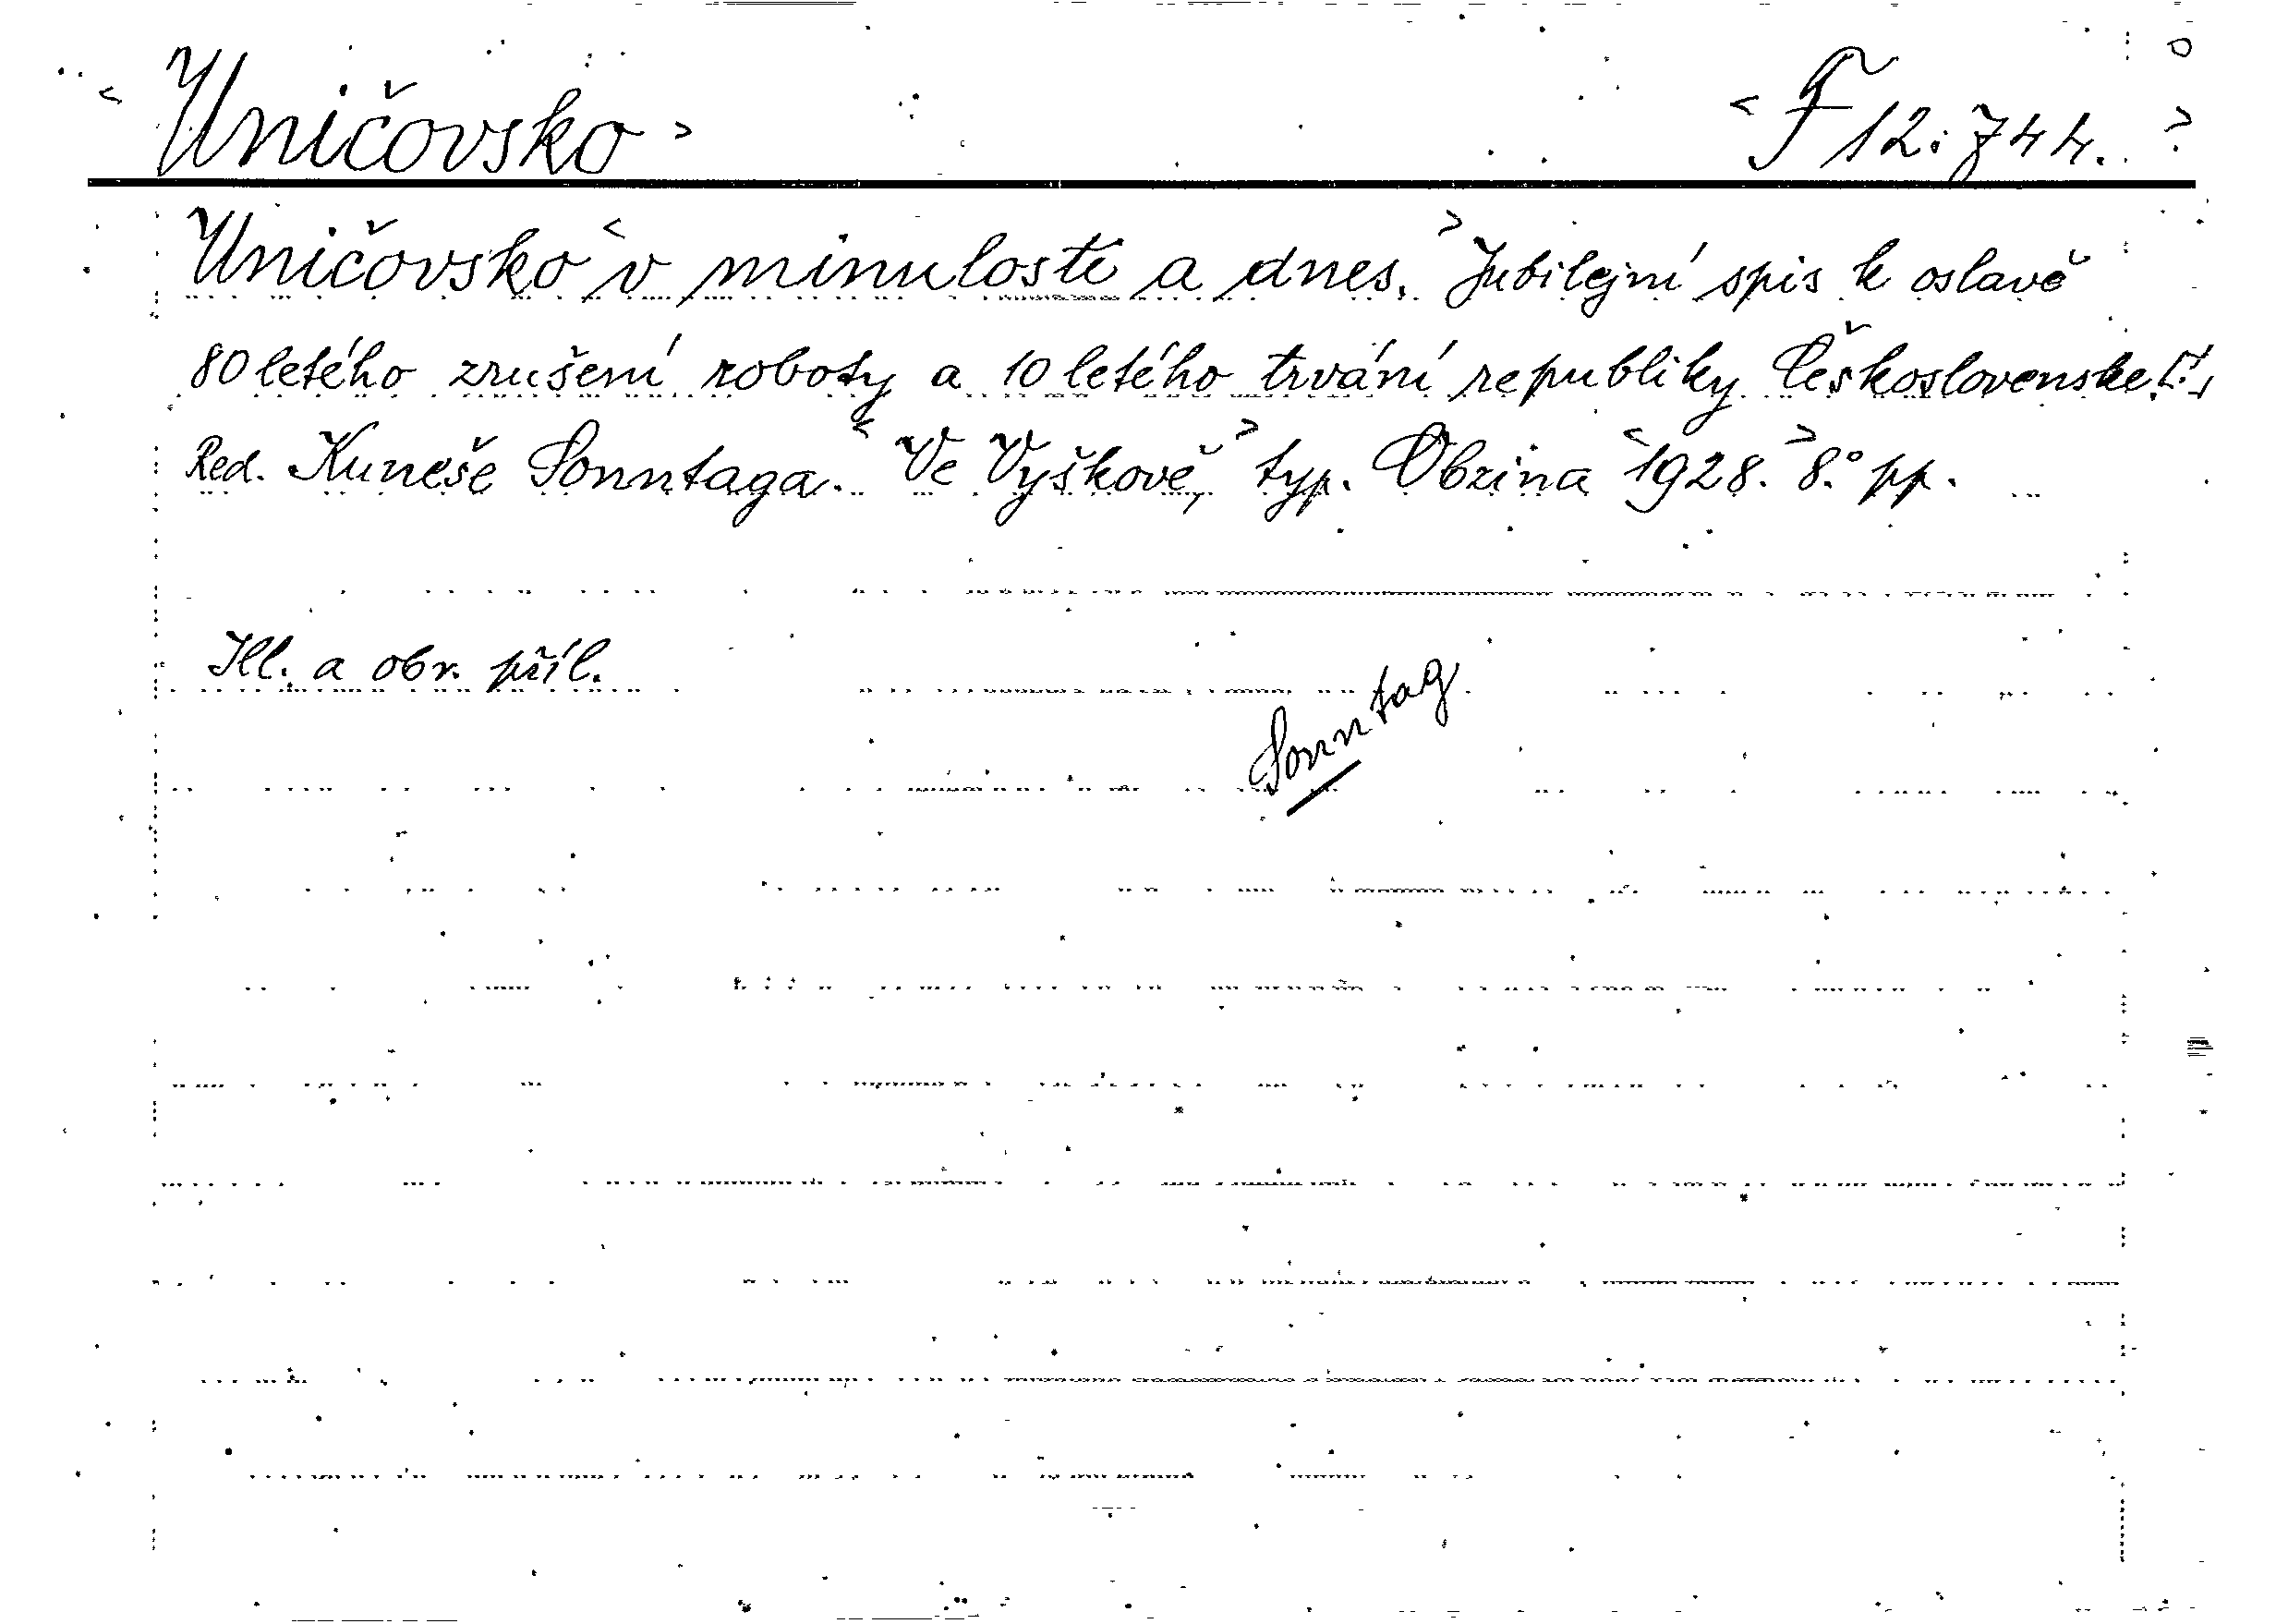 < Uničovsko > < F 12.744. >
Uničovsko < v minulosti a dnes. > Jubilejní spis k oslavě
80letého zrušení roboty a 10letého trvání republiky Československe[!]
Red. Kuneše Sonntaga. < Ve Vyškově, > typ. Obzina < 1928. > 8.° pp.
Ill. a obr. příl.
Sonntag